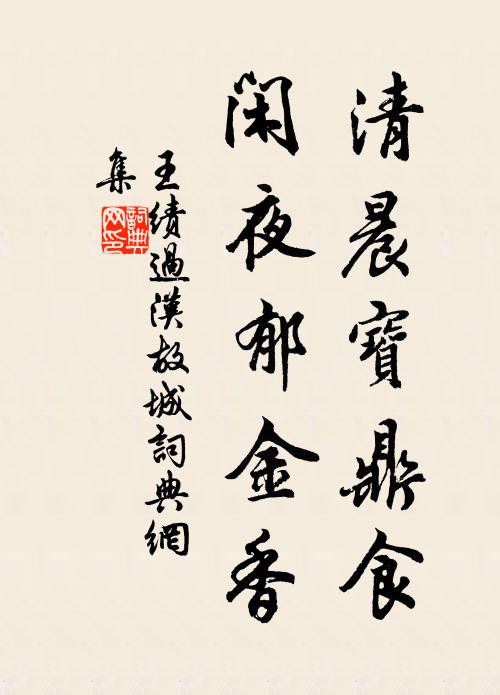 清晨寶鼎食
闲夜郁金香
王績過漢故城詞典網
集
詞典
网印